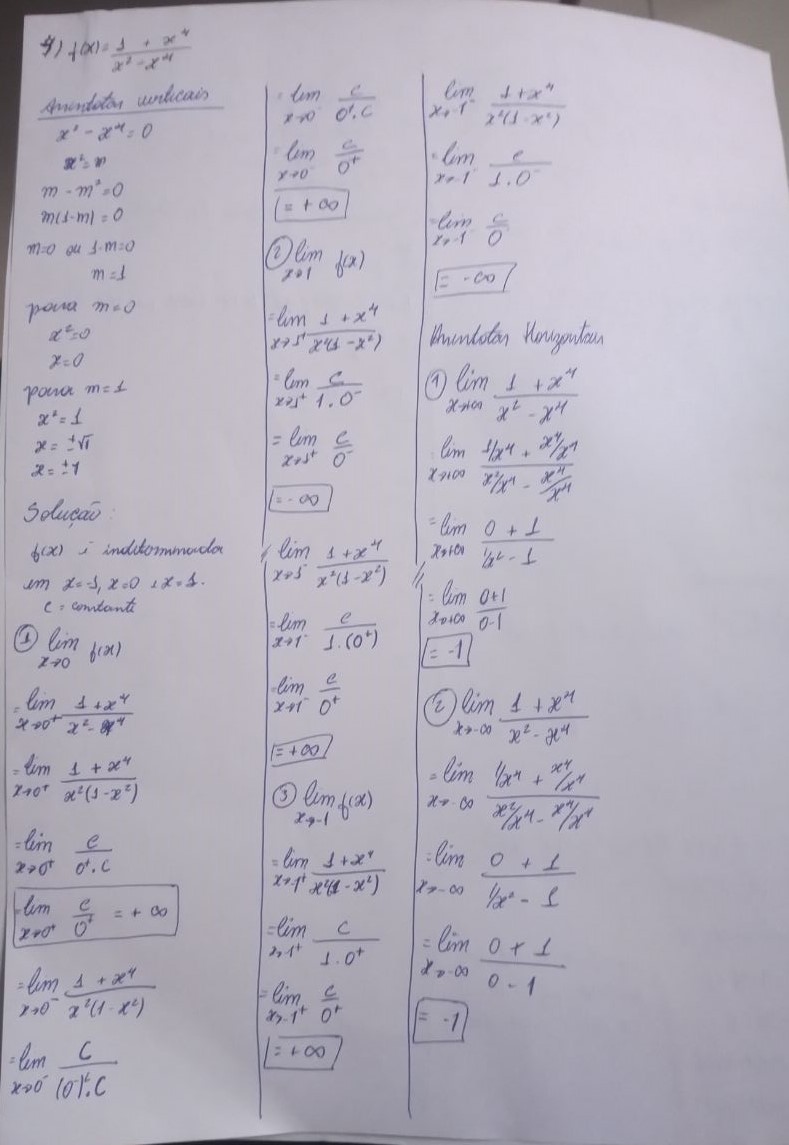 4) f(x) = (1 + x⁴)/(x² - x⁴)
Assíntotas verticais
x² - x⁴ = 0
x² = m
m - m² = 0
m(1-m) = 0
m=0 ou 1-m=0
m=1
para m=0
x²=0
x=0
para m=1
x²=1
x = ±√1
x = ±1
Solução:
f(x) é indeterminada
em x=-1, x=0 e x=1.
C = constante
① lim x→0 f(x)
= lim x→0⁺ (1+x⁴)/(x²-x⁴)
= lim x→0⁺ (1+x⁴)/(x²(1-x²))
= lim x→0⁺ C/(0⁺.C)
= lim x→0⁺ C/0⁺ = +∞
= lim x→0⁻ (1+x⁴)/(x²(1-x²))
= lim x→0⁻ C/((0⁻)².C)
= lim x→0⁻ C/(0⁺.C)
= lim x→0⁻ C/0⁺
= +∞
② lim x→1 f(x)
= lim x→1⁺ (1+x⁴)/(x²(1-x²))
= lim x→1⁺ C/(1.0⁻)
= lim x→1⁺ C/0⁻
= -∞
lim x→1⁻ (1+x⁴)/(x²(1-x²))
= lim x→1⁻ C/(1.(0⁺))
= lim x→1⁻ C/0⁺
= +∞
③ lim x→-1 f(x)
= lim x→-1⁺ (1+x⁴)/(x²(1-x²))
= lim x→-1⁺ C/(1.0⁺)
= lim x→-1⁺ C/0⁺
= +∞
lim x→-1⁻ (1+x⁴)/(x²(1-x²))
= lim x→-1⁻ C/(1.0⁻)
= lim x→-1⁻ C/0⁻
= -∞
Assíntotas Horizontais
① lim x→+∞ (1+x⁴)/(x²-x⁴)
lim x→+∞ (1/x⁴ + x⁴/x⁴)/(x²/x⁴ - x⁴/x⁴)
= lim x→+∞ (0+1)/(1/x² - 1)
= lim x→+∞ (0+1)/(0-1)
= -1
② lim x→-∞ (1+x⁴)/(x²-x⁴)
= lim x→-∞ (1/x⁴ + x⁴/x⁴)/(x²/x⁴ - x⁴/x⁴)
= lim x→-∞ (0+1)/(1/x² - 1)
= lim x→-∞ (0+1)/(0-1)
= -1